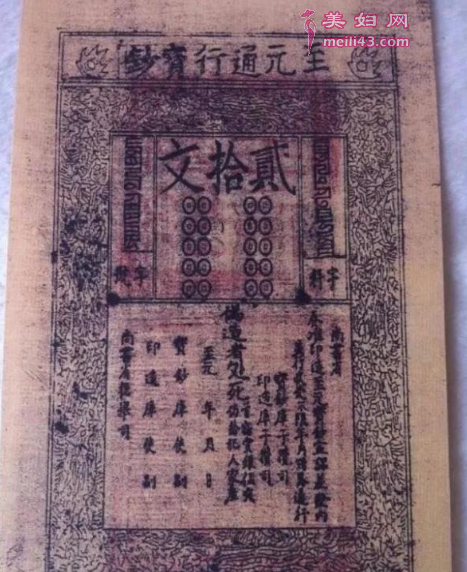 美妇网
meili43.com
至元通行寶鈔
貳拾文
字料
字號
尚書省
奏准印造至元寶鈔宣課差役內
並行收受不限年月諸路通行
寶鈔庫子攢司
印造庫子攢司
偽造者處死
首告者賞銀伍定
仍給犯人家產
至元 年 月 日
寶鈔庫使副
印造庫使副
尚書省提舉司